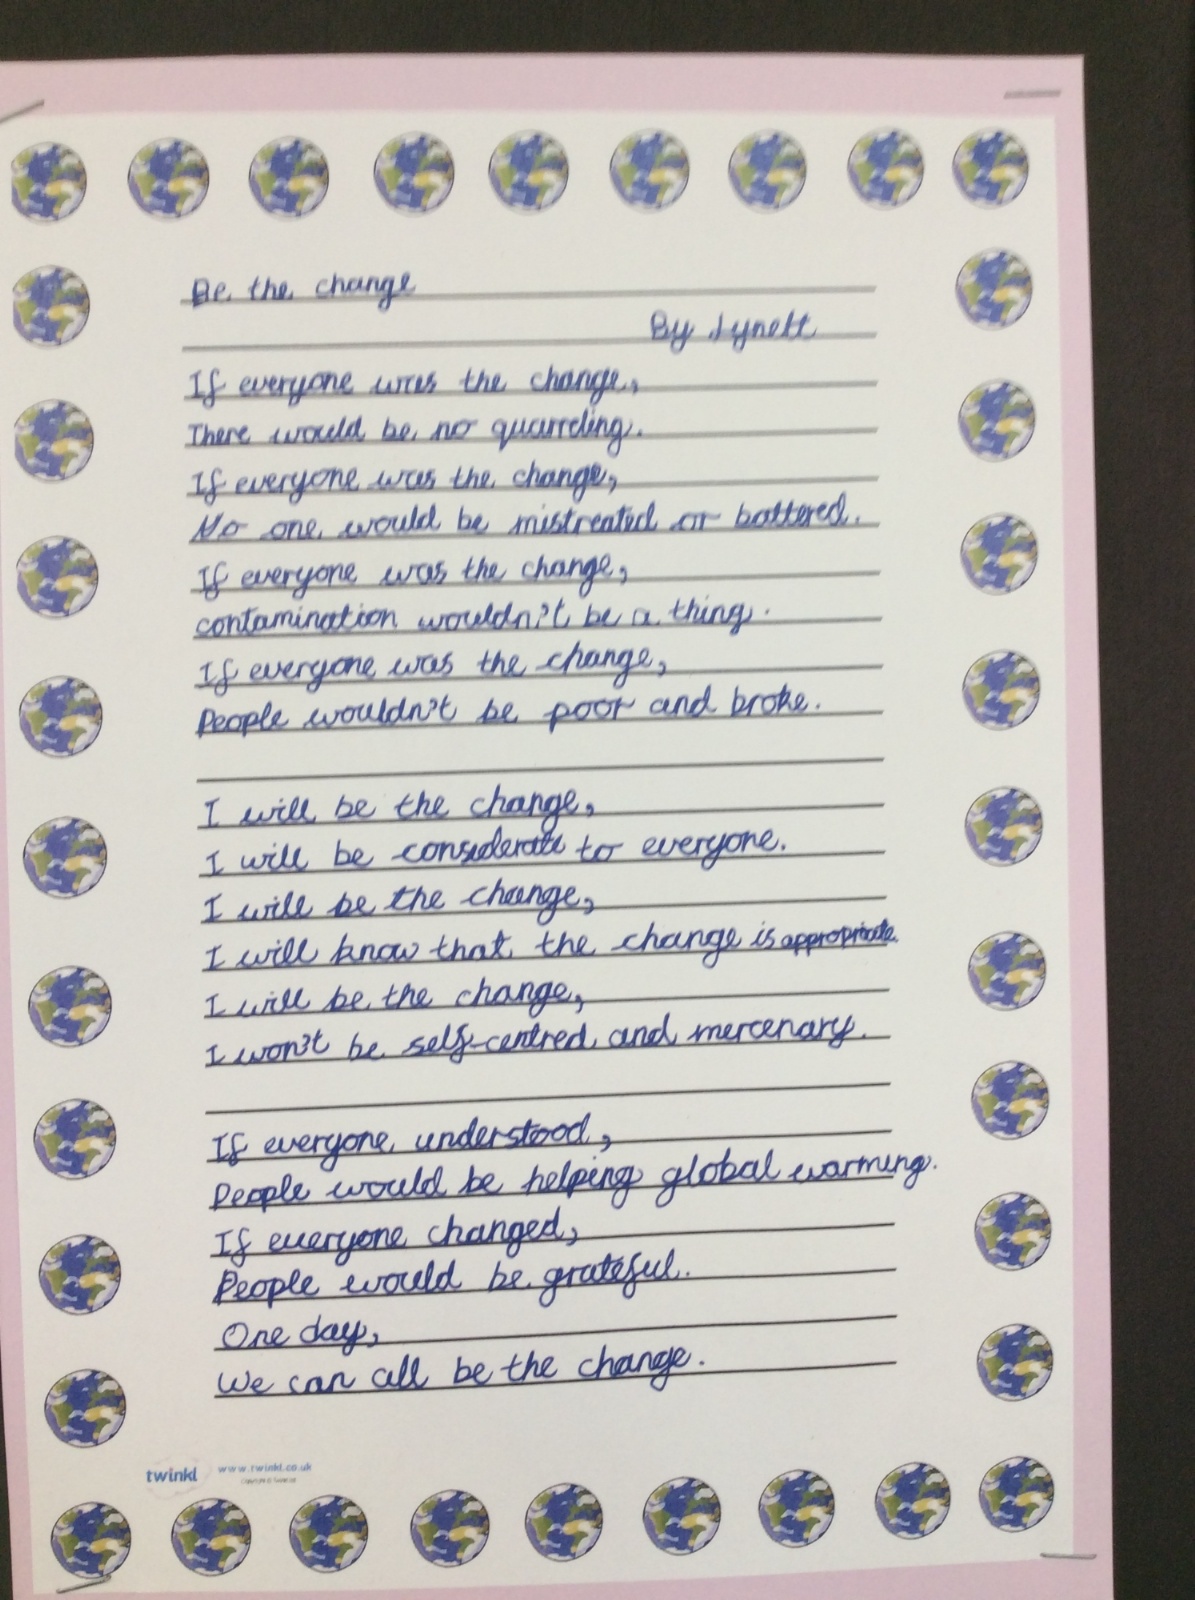 Be the change
By Lynett
If everyone was the change,
There would be no quarreling.
If everyone was the change,
No one would be mistreated or battered.
If everyone was the change,
contamination wouldn't be a thing.
If everyone was the change,
People wouldn't be poor and broke.
I will be the change,
I will be considerate to everyone.
I will be the change,
I will know that the change is appropriate.
I will be the change,
I won't be self-centred and mercenary.
If everyone understood,
People would be helping global warming.
If everyone changed,
People would be grateful.
One day,
We can all be the change.
twinkl www.twinkl.co.uk